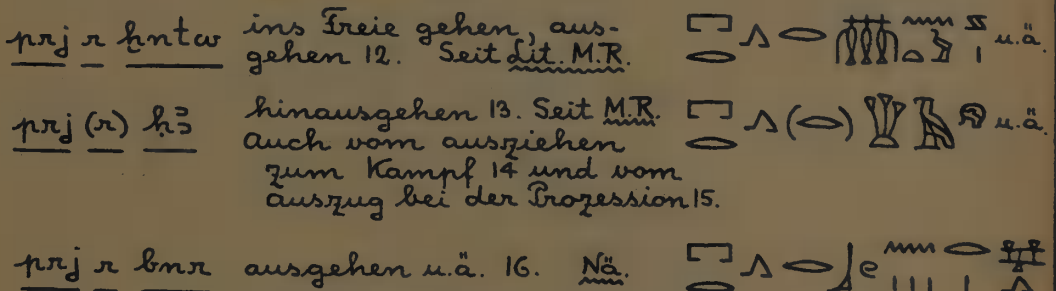 prj r ḫntw ins Freie gehen, aus-
gehen 12. Seit Lit. M.R. 𓉐𓂋𓂻𓂋 u.ä.
prj (r) ḥꜣ hinausgehen 13. Seit M.R. 𓉐𓂋𓂻(𓂋) u.ä.
auch vom ausziehen
zum Kampf 14 und vom
auszug bei der Prozession 15.
prj r bnr ausgehen u.ä. 16. Nä. 𓉐𓂋𓂻𓂋𓃀